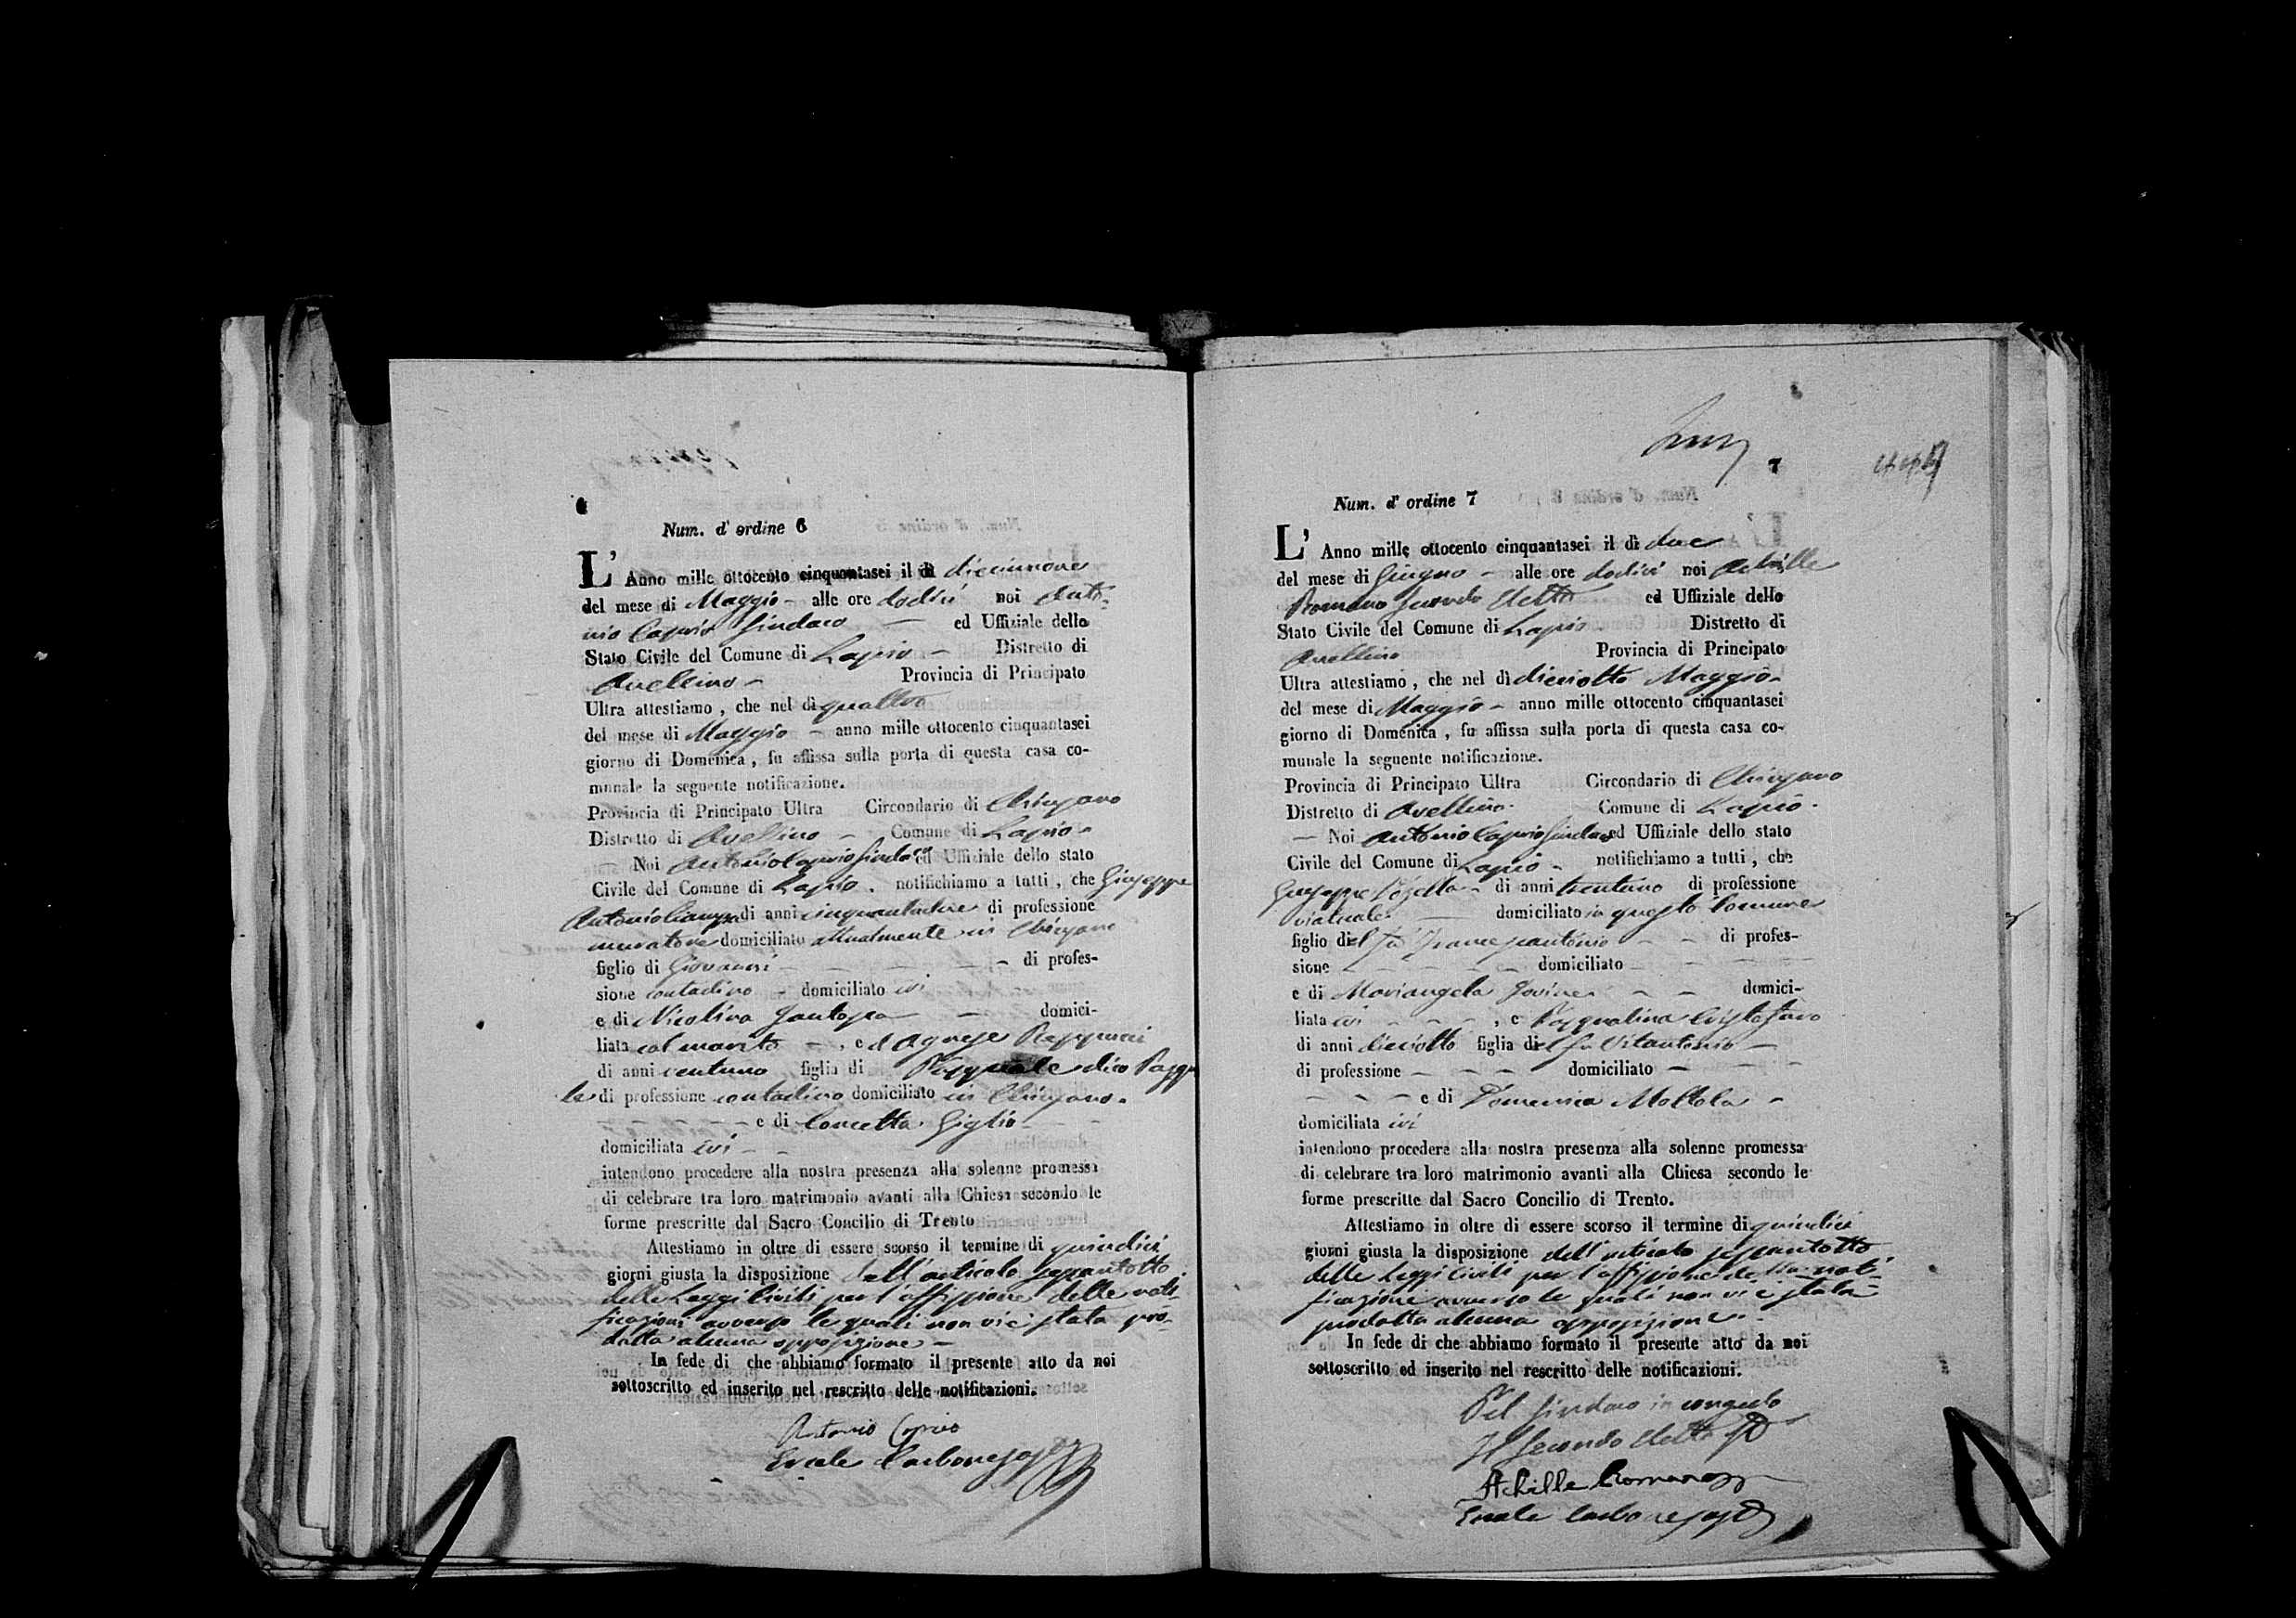 6
Num. d' ordine 6
L' Anno mille ottocento cinquantasei il di diecinnove
del mese di Maggio - alle ore dodici noi Anto-
nio Caprio Sindaco - ed Uffiziale dello
Stato Civile del Comune di Lapio - Distretto di
Avellino - Provincia di Principato
Ultra attestiamo, che nel dì quattro
del mese di Maggio - anno mille ottocento cinquantasei
giorno di Domenica, fu affissa sulla porta di questa casa co-
munale la seguente notificazione.
Provincia di Principato Ultra Circondario di Chiusano
Distretto di Avellino - Comune di Lapio -
- Noi Antonio Caprio Sindaco ed Uffiziale dello stato
Civile del Comune di Lapio - notifichiamo a tutti, che Giuseppe
Antonio di anni di professione
muratore domiciliato attualmente in Chiusano
figlio di Giovanni - di profes-
sione contadino - domiciliato ivi
e di Nicolina - domici-
liata col marito -, ed Agnese
di anni ventuno figlia di Pasquale dico Pasqua
le di professione contadino domiciliato in Chiusano -
- e di Concetta Giglio -
domiciliata ivi -
intendono procedere alla nostra presenza alla solenne promessa
di celebrare tra loro matrimonio avanti alla Chiesa secondo le
forme prescritte dal Sacro Concilio di Trento
Attestiamo in oltre di essere scorso il termine di quindici
giorni giusta la disposizione dell'articolo sessantotto
delle Leggi Civili per l'affissione delle noti-
ficazioni avverso le quali non vi è stata pro-
dotta alcuna opposizione -
In fede di che abbiamo formato il presente atto da noi
sottoscritto ed inserito nel rescritto delle notificazioni.
Antonio Caprio
Ercole Carbone
7
Num. d' ordine 7
L' Anno mille ottocento cinquantasei il dì due
del mese di Giugno - alle ore dodici noi Achille
Romano Secondo Eletto ed Uffiziale dello
Stato Civile del Comune di Lapio - Distretto di
Avellino Provincia di Principato
Ultra attestiamo, che nel dì dieciotto Maggio -
del mese di Maggio - anno mille ottocento cinquantasei
giorno di Domenica, fu affissa sulla porta di questa casa co-
munale la seguente notificazione.
Provincia di Principato Ultra Circondario di Chiusano
Distretto di Avellino - Comune di Lapio -
- Noi Antonio Caprio Sindaco ed Uffiziale dello stato
Civile del Comune di Lapio - notifichiamo a tutti, che
Giuseppe - di anni trentuno di professione
domiciliato in questo Comune
figlio del fu Francescantonio - - di profes-
sione - - - domiciliato - - -
e di Mariangela Iovine - - domici-
liata ivi - - -, e Pasqualina Cristofaro
di anni dieciotto figlia del fu Vitantonio -
di professione - - - domiciliato - - -
- - - e di Domenica Mottola -
domiciliata ivi
intendono procedere alla nostra presenza alla solenne promessa
di celebrare tra loro matrimonio avanti alla Chiesa secondo le
forme prescritte dal Sacro Concilio di Trento.
Attestiamo in oltre di essere scorso il termine di quindici
giorni giusta la disposizione dell'articolo sessantotto
delle Leggi Civili per l'affissione della noti-
ficazione avverso le quali non vi è stata
prodotta alcuna opposizione -
In fede di che abbiamo formato il presente atto da noi
sottoscritto ed inserito nel rescritto delle notificazioni.
Pel Sindaco in congedo
Il Secondo Eletto
Achille Romano
Ercole Carbone